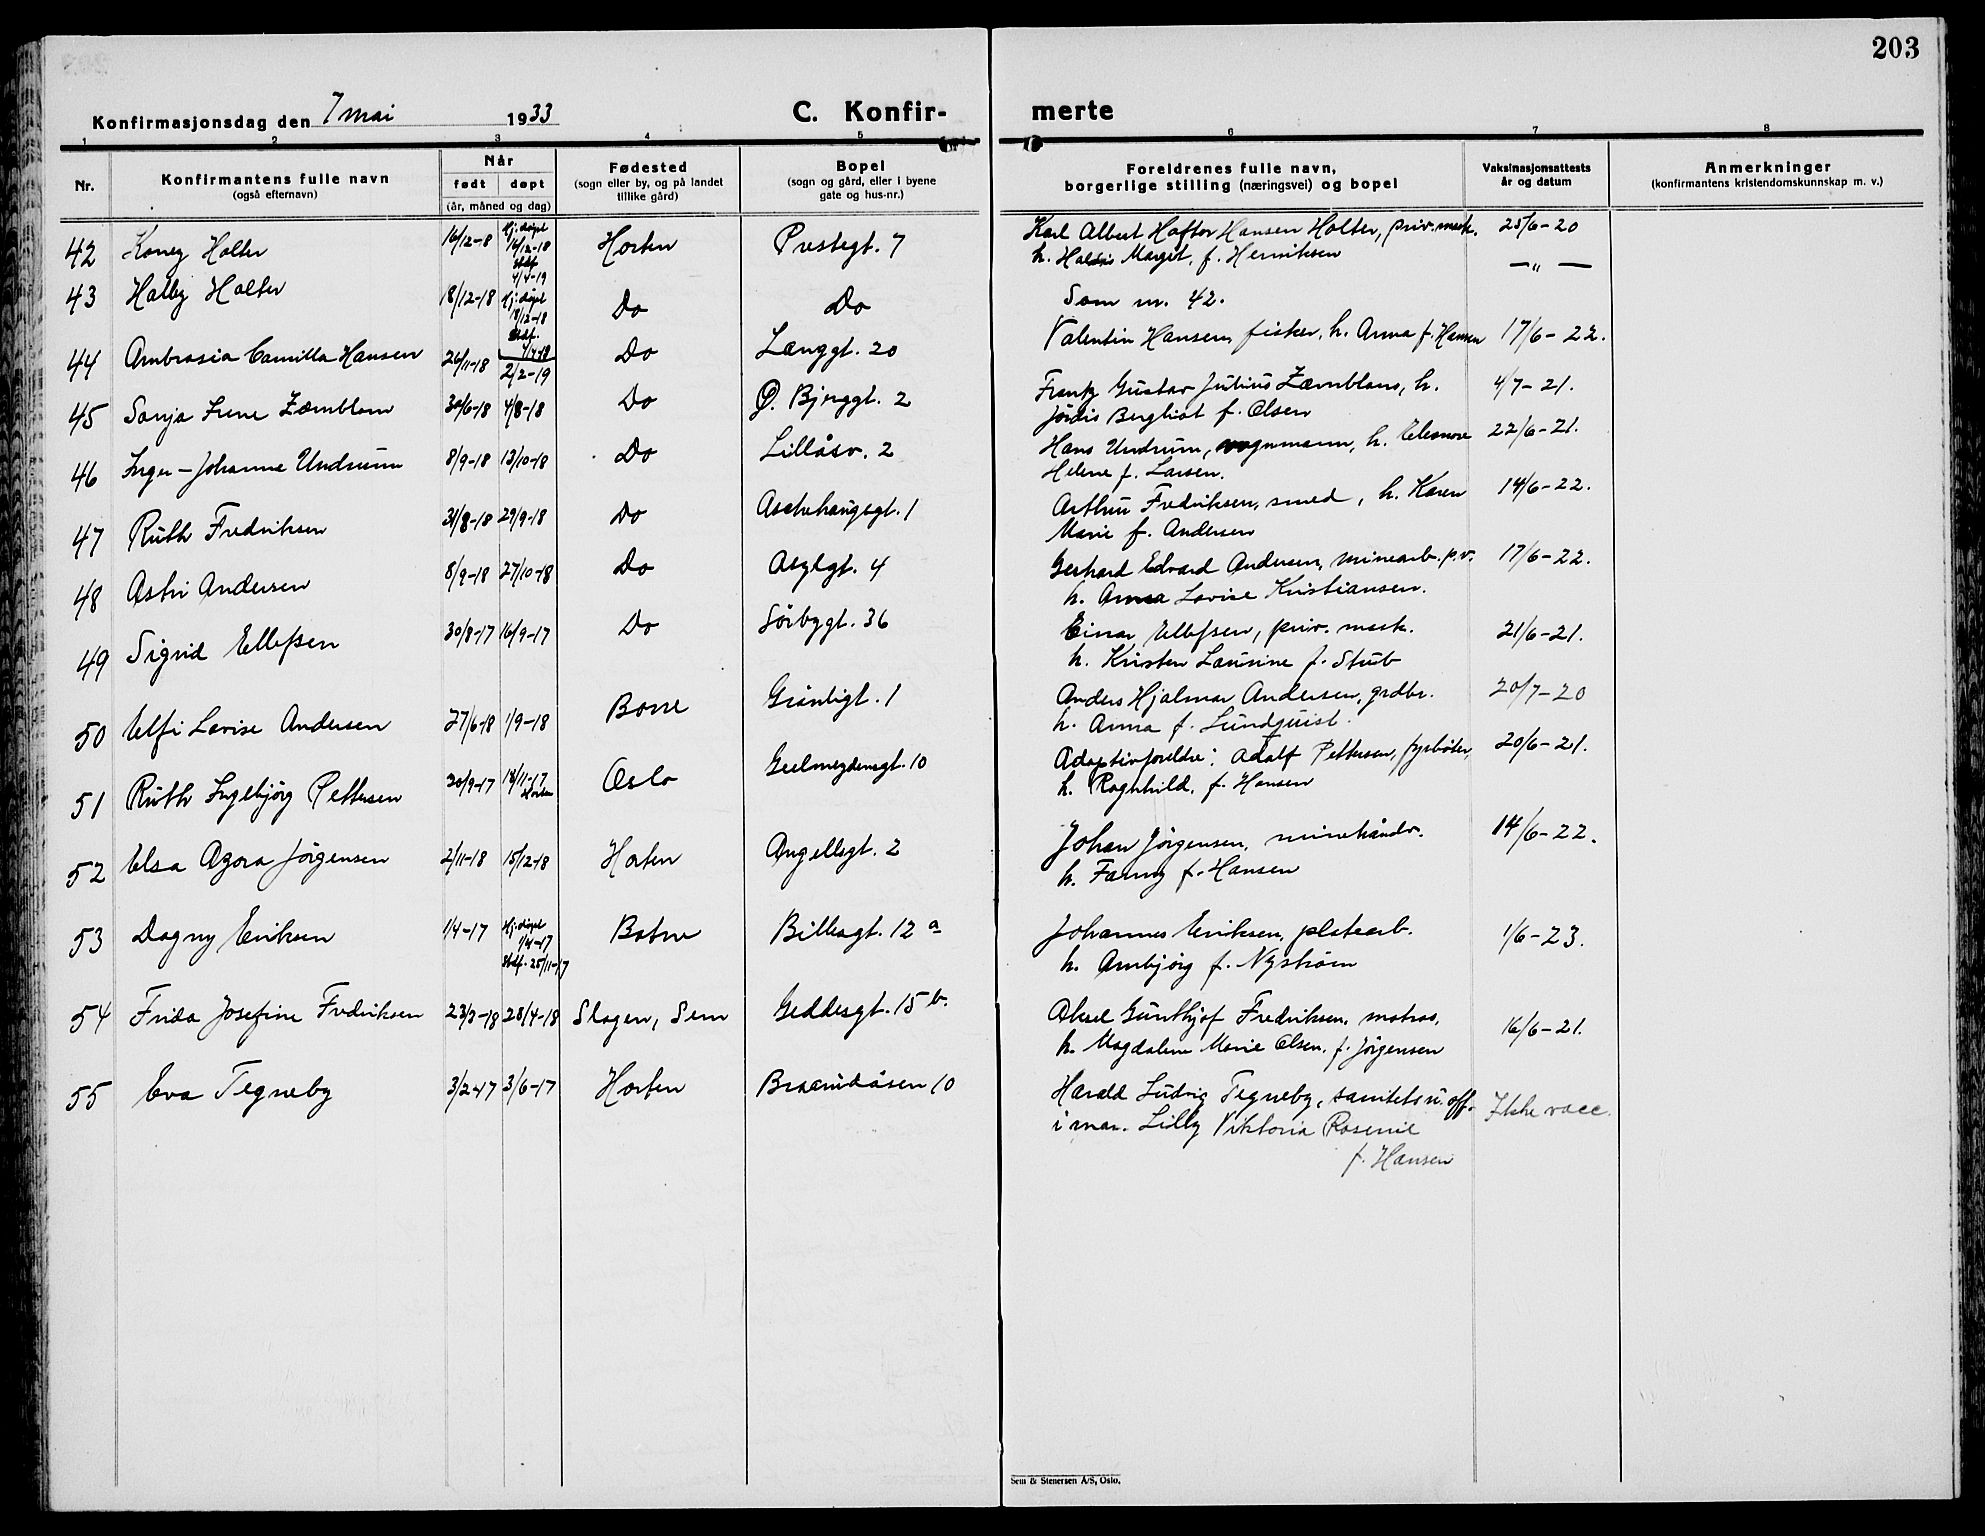 203
Konfirmasjonsdag den 7 mai 1933
C. Konfir-
merte
1 2 3 4 5 6 7 8
Nr.
Konfirmantens fulle navn
(også efternavn)
Når
født døpt
(år, måned og dag)
Fødested
(sogn eller by, og på landet
tillike gård)
Bopel
(sogn og gård, eller i byene
gate og hus-nr.)
Foreldrenes fulle navn,
borgerlige stilling (næringsvei) og bopel
Vaksinasjonsattests
år og datum
Anmerkninger
(konfirmantens kristendomskunnskap m. v.)
42 Holter 16/12-8 Hj. døpt 16/12-18 Stdf. 4/4-19 Horten Prestegt. 7 Karl Albert Hansen Holter, priv. mask. 25/6-20
h. Margit, f. Henriksen
43 Holter 18/12-18 Hj. døpt 18/12-18 Stdf. Do Do Som nr. 42. — " —
44 Ambrosia Camilla Hansen 26/11-18 2/2-19 Do Langgt. 20 Valentin Hansen, fisker, h. Anna f. Hansen 17/6-22.
45 Sonja Irene 30/6-18 4/8-18 Do Ø. Bjerggt. 2 Gustav Julius h. 4/7-21.
Jørdis Bergliot f. Olsen
46 Inger-Johanne Undrum 8/9-18 13/10-18 Do Lillåsv. 2 Hans Undrum, vognmann, h. Eleonore 22/6-21.
Helene f. Larsen.
47 Ruth Fredriksen 31/8-18 29/9-18 Do Aschehougsgt. 1 Arthur Fredriksen, smed, h. Karen 14/6-22.
Marie f. Andersen
48 Astri Andersen 8/9-18 27/10-18 Do Asylgt. 4 Gerhard Edvard Andersen, minearb. p.v. 17/6-22.
h. Anna Lovise Kristiansen.
49 Sigrid Ellefsen 30/8-17 16/9-17 Do Sørbygt. 36 Einar Ellefsen, priv. mask. 21/6-21.
h. Kristen Laurine f. Stub
50 Elfi Lovise Andersen 27/6-18 1/9-18 Borre Grønligt. 1 Anders Hjalmar Andersen, grdbr. 20/7-20
h. Anna f. Lundquist.
51 Ruth Ingebjørg Pettersen 30/9-17 18/11-17 Horten Oslo Geelmeydensgt. 10 Adoptivforeldre: Adolf Pettersen, fyrbøter, 20/6-21.
h. Raghhild, f. Hansen
52 Elsa Agora Jørgensen 2/11-18 15/12-18 Horten Angellsgt. 2 Johan Jørgensen, minehåndv. 14/6-22.
h. Fanny f. Hansen
53 Dagny Eriksen 1/4-17 Hj. døpt 1/4-17 Stdf. 25/11-17 Botne Billesgt. 12 a Johannes Eriksen, platearb. 1/6-23.
h. Arnbjørg f. Nystrøm
54 Frida Josefine Fredriksen 23/3-18 28/4-18 Slagen, Sem Geddesgt. 15 b. Aksel Gunthjof Fredriksen, matros, 16/6-21.
h. Magdalene Marie Olsen, f. Jørgensen
55 Eva Tegneby 3/2-17 3/6-17 Horten Braarudåsen 10 Harald Ludvig Tegneby, sanitetsu.off. Ikke vacc.
i mar. Lilly Viktoria Rosenie
f. Hansen
Sem & Stenersen A/S, Oslo.